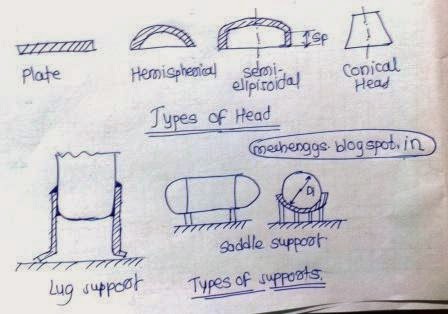 Plate
Hemispherical
semi-
elipisoidal
Sf
Conical
Head
Types of Head
mechenggs.blogspot.in
Di
Lug support
saddle support
Types of supports.